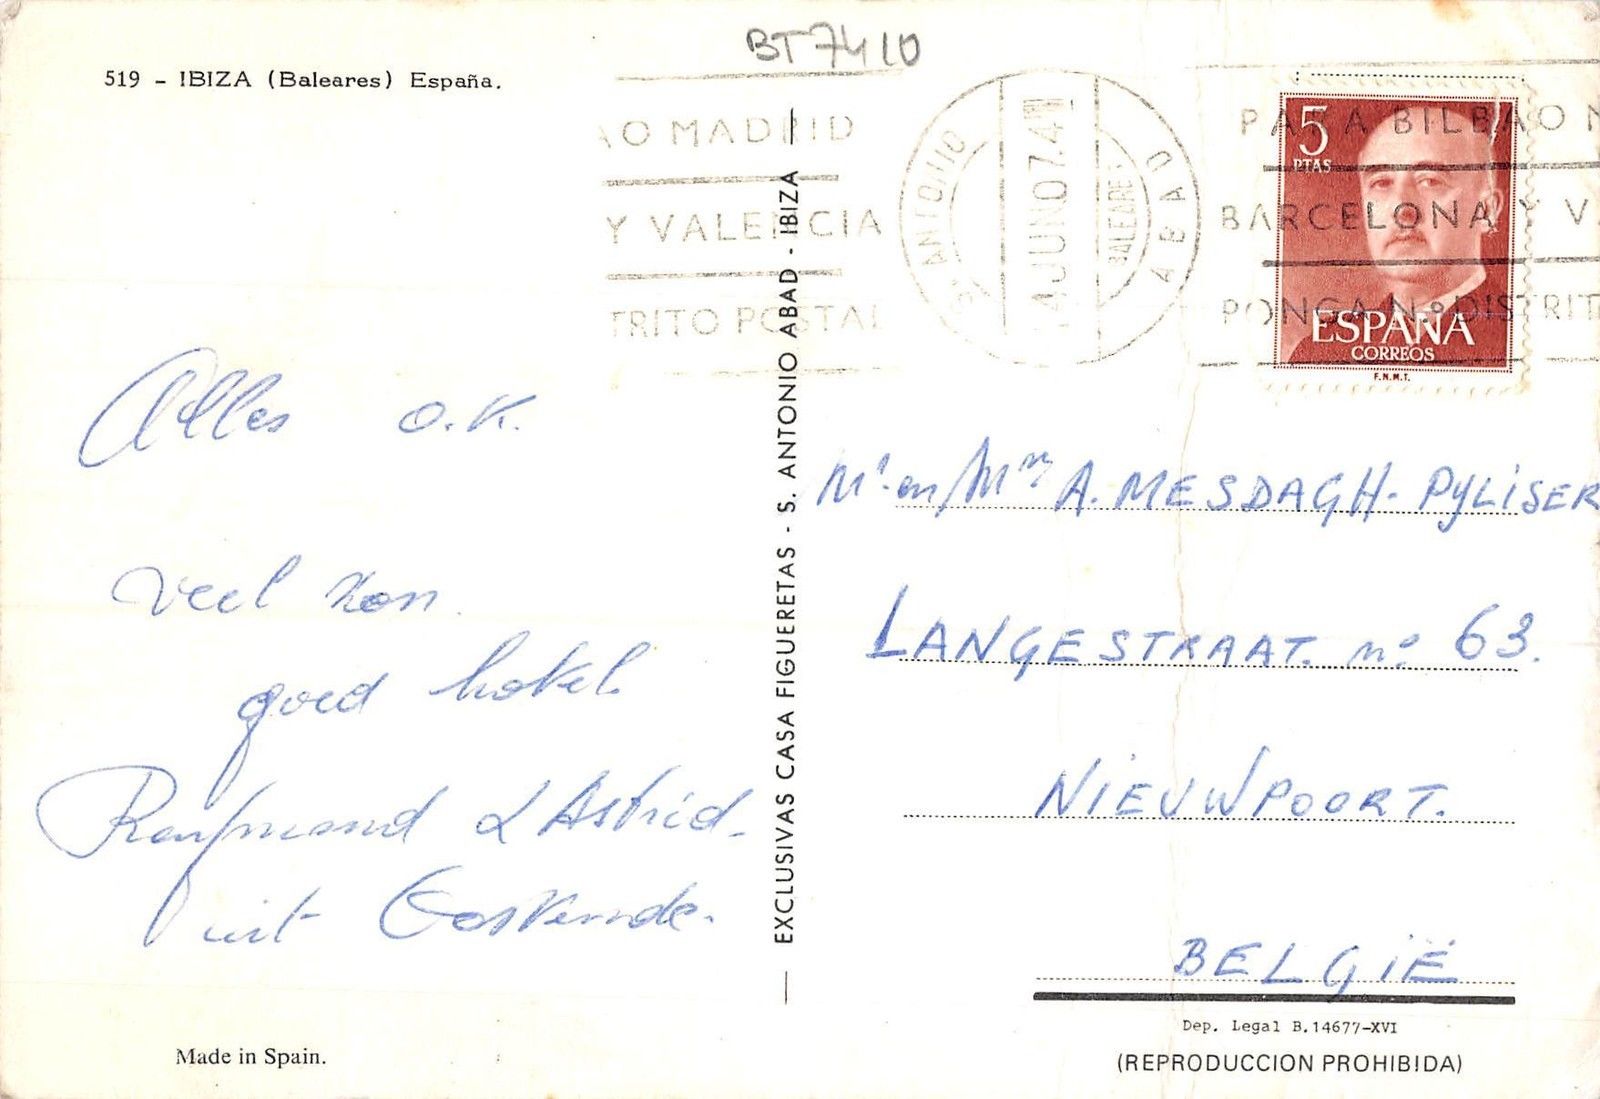 BT7410
519 - IBIZA (Baleares) España.
AO MADRID
Y VALENCIA
TRITO POSTAL
S. ANTONIO ABAD
BALEARES
JUN 07.4
PARA BILBAO
BARCELONA Y V
PONGA N.º DISTRIT
5
PTAS
ESPAÑA
CORREOS
F.N.M.T.
Alles o.k.
veel zon.
goed hotel.
Raymond & Astrid.
uit Oostende.
Made in Spain.
EXCLUSIVAS CASA FIGUERETAS - S. ANTONIO ABAD - IBIZA
Mr. en Mm A. MESDAGH-PYLISER
LANGESTRAAT. no 63.
NIEUWPOORT.
BELGIË
Dep. Legal B.14677-XVI
(REPRODUCCION PROHIBIDA)